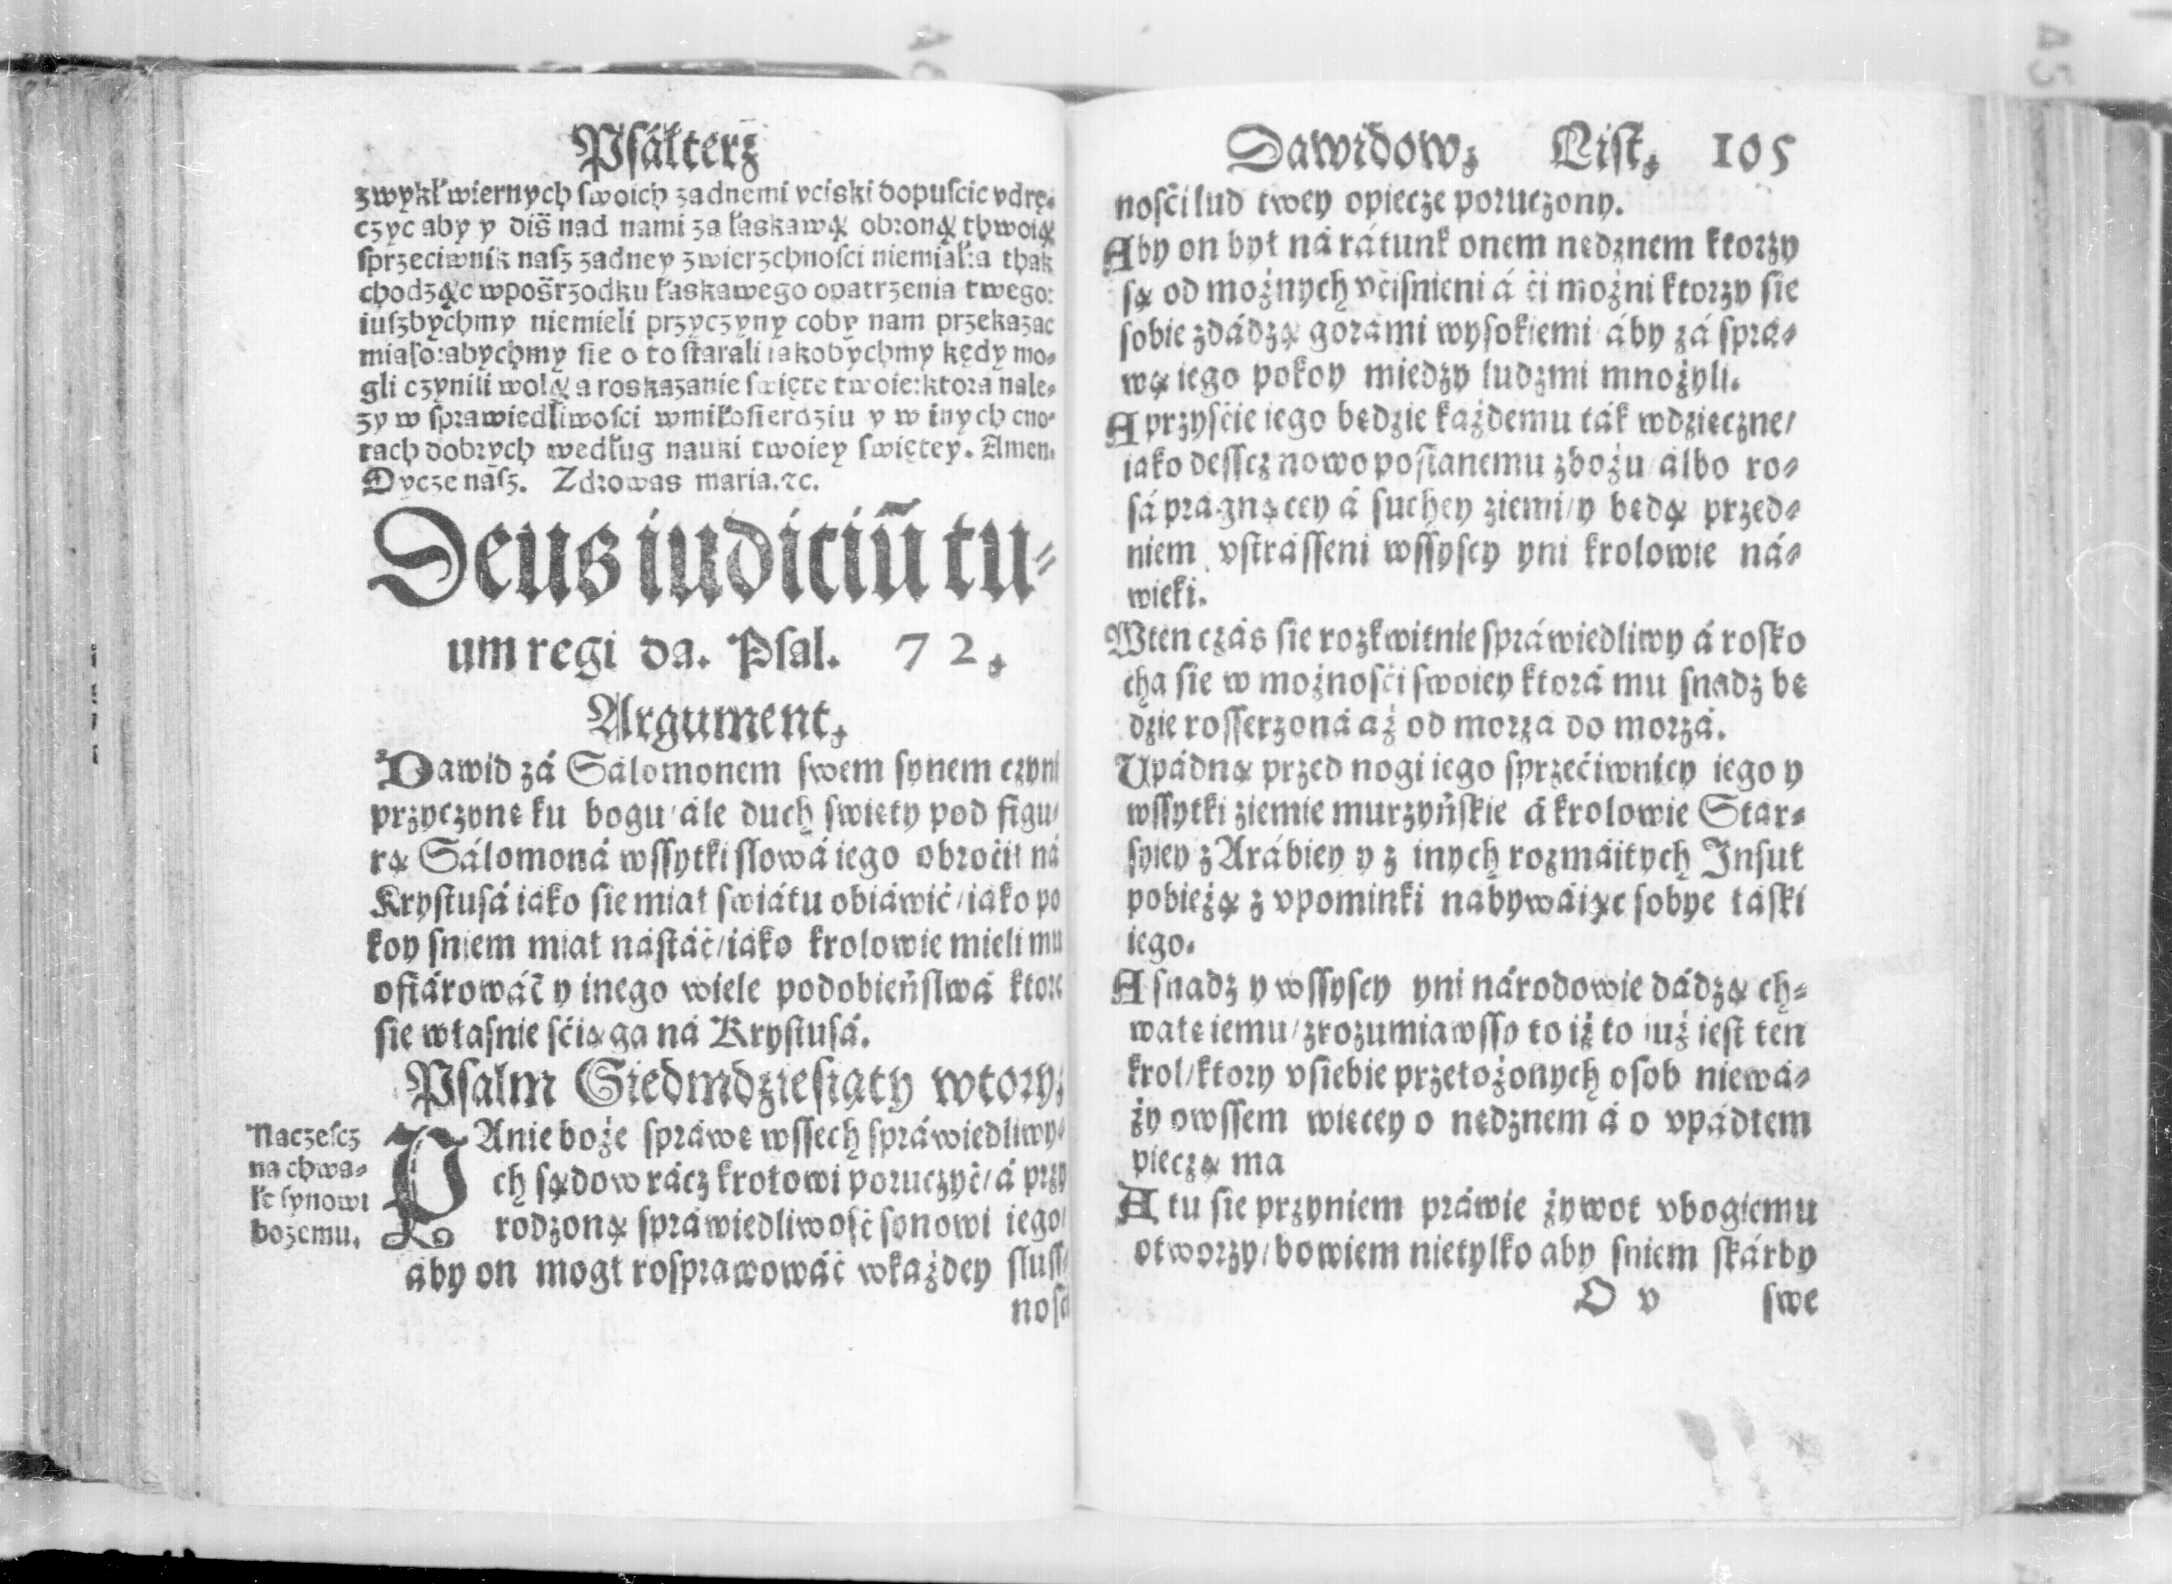 Psałterz
zwykł wiernych swoich zadnemi vciski dopuscic vdrę-
czyc aby y diś nad nami za łaskawą obroną thwoią
sprzeciwnik nasz zadney zwierzchnosci niemiał: a thak
chodząc wpośrzodku łaskawego opatrzenia twego:
iuszbychmy niemieli przyczyny coby nam przekazac
miało: abychmy sie o to starali iakobychmy kędy mo-
gli czynili wolą a roskazanie swięte twoie: ktora nale-
zy w sprawiedliwosci wmiłosierdziu y w inych cno-
tach dobrych według nauki twoiey swiętey. Amen.
Oycze nasz. Zdrowas maria. ꝛc.
Deus iudiciū tu-
um regi da. Psal. 72.
Argument.
Dawid zá Sálomonem swem synem czyni
przyczynę ku bogu / ále duch swięty pod figu-
rą Sálomoná wssytki słowá iego obroćił ná
Krystusá iáko sie miał swiátu obiáwić / iáko po
koy sniem miał nástáć / iáko krolowie mieli mu
ofiárowáć y inego wiele podobieństwá ktore
się własnie sćiąga ná Krystusá.
Psalm Siedmdziesiąty wtory.
Naczescz
na chwa-
łe synowi
bożemu.
PAnie boże spráwę wssech spráwiedliwy-
ch sądow rácz krolowi poruczyć / á przy
rodzoną spráwiedliwość synowi iego /
aby on mogł rosprawowáć wkażdey sluss-
nosci
Dawidow. List. 105
nosći lud twey opiecze poruczony.
Aby on był ná rátunk onem nędznem ktorzy
są od możnych vćisnieni á ći możni ktorzy sie
sobie zdádzą gorámi wysokiemi áby zá sprá-
wą iego pokoy miedzy ludzmi mnożyli.
A przysćie iego będzie każdemu ták wdzięczne /
iáko dessez nowo posianemu zbożu / álbo ro-
sá prágnącey á suchey ziemi / y będą przed-
niem vstrásseni wssyscy yni krolowie ná-
wieki.
Wten czás sie rozkwitnie spráwiedliwy á rosko
cha sie w możnosći swoiey ktorá mu snadz bę
dzie rosserzoná aż od morzá do morzá.
Upádną przed nogi iego sprzećiwnicy iego y
wssytki ziemie murzyńskie á krolowie Star-
syiey z Arábiey y z inych rozmáitych Insuł
pobieżą z vpominki nabywáiąc sobye łáski
iego.
A snadz y wssyscy yni národowie dádzą ch-
wałę iemu / zrozumiawssy to iż to iuż iest ten
krol / ktory vsiebie przełożonych osob niewá-
ży owssem więcey o nędznem á o vpádłem
pieczą ma
A tu sie przyniem práwie żywot vbogiemu
otworzy / bowiem nietylko aby sniem skárby
O v swe